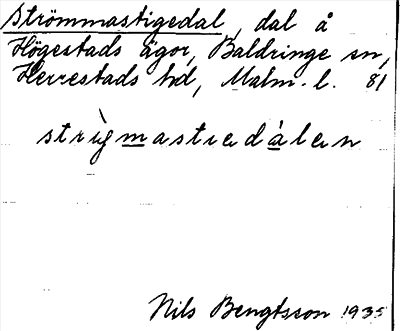 Strömmastigedal, dal å
Högestads ägor, Baldringe sn,
Herrestads hd, Malm. l. 81
Nils Bengtsson 1935